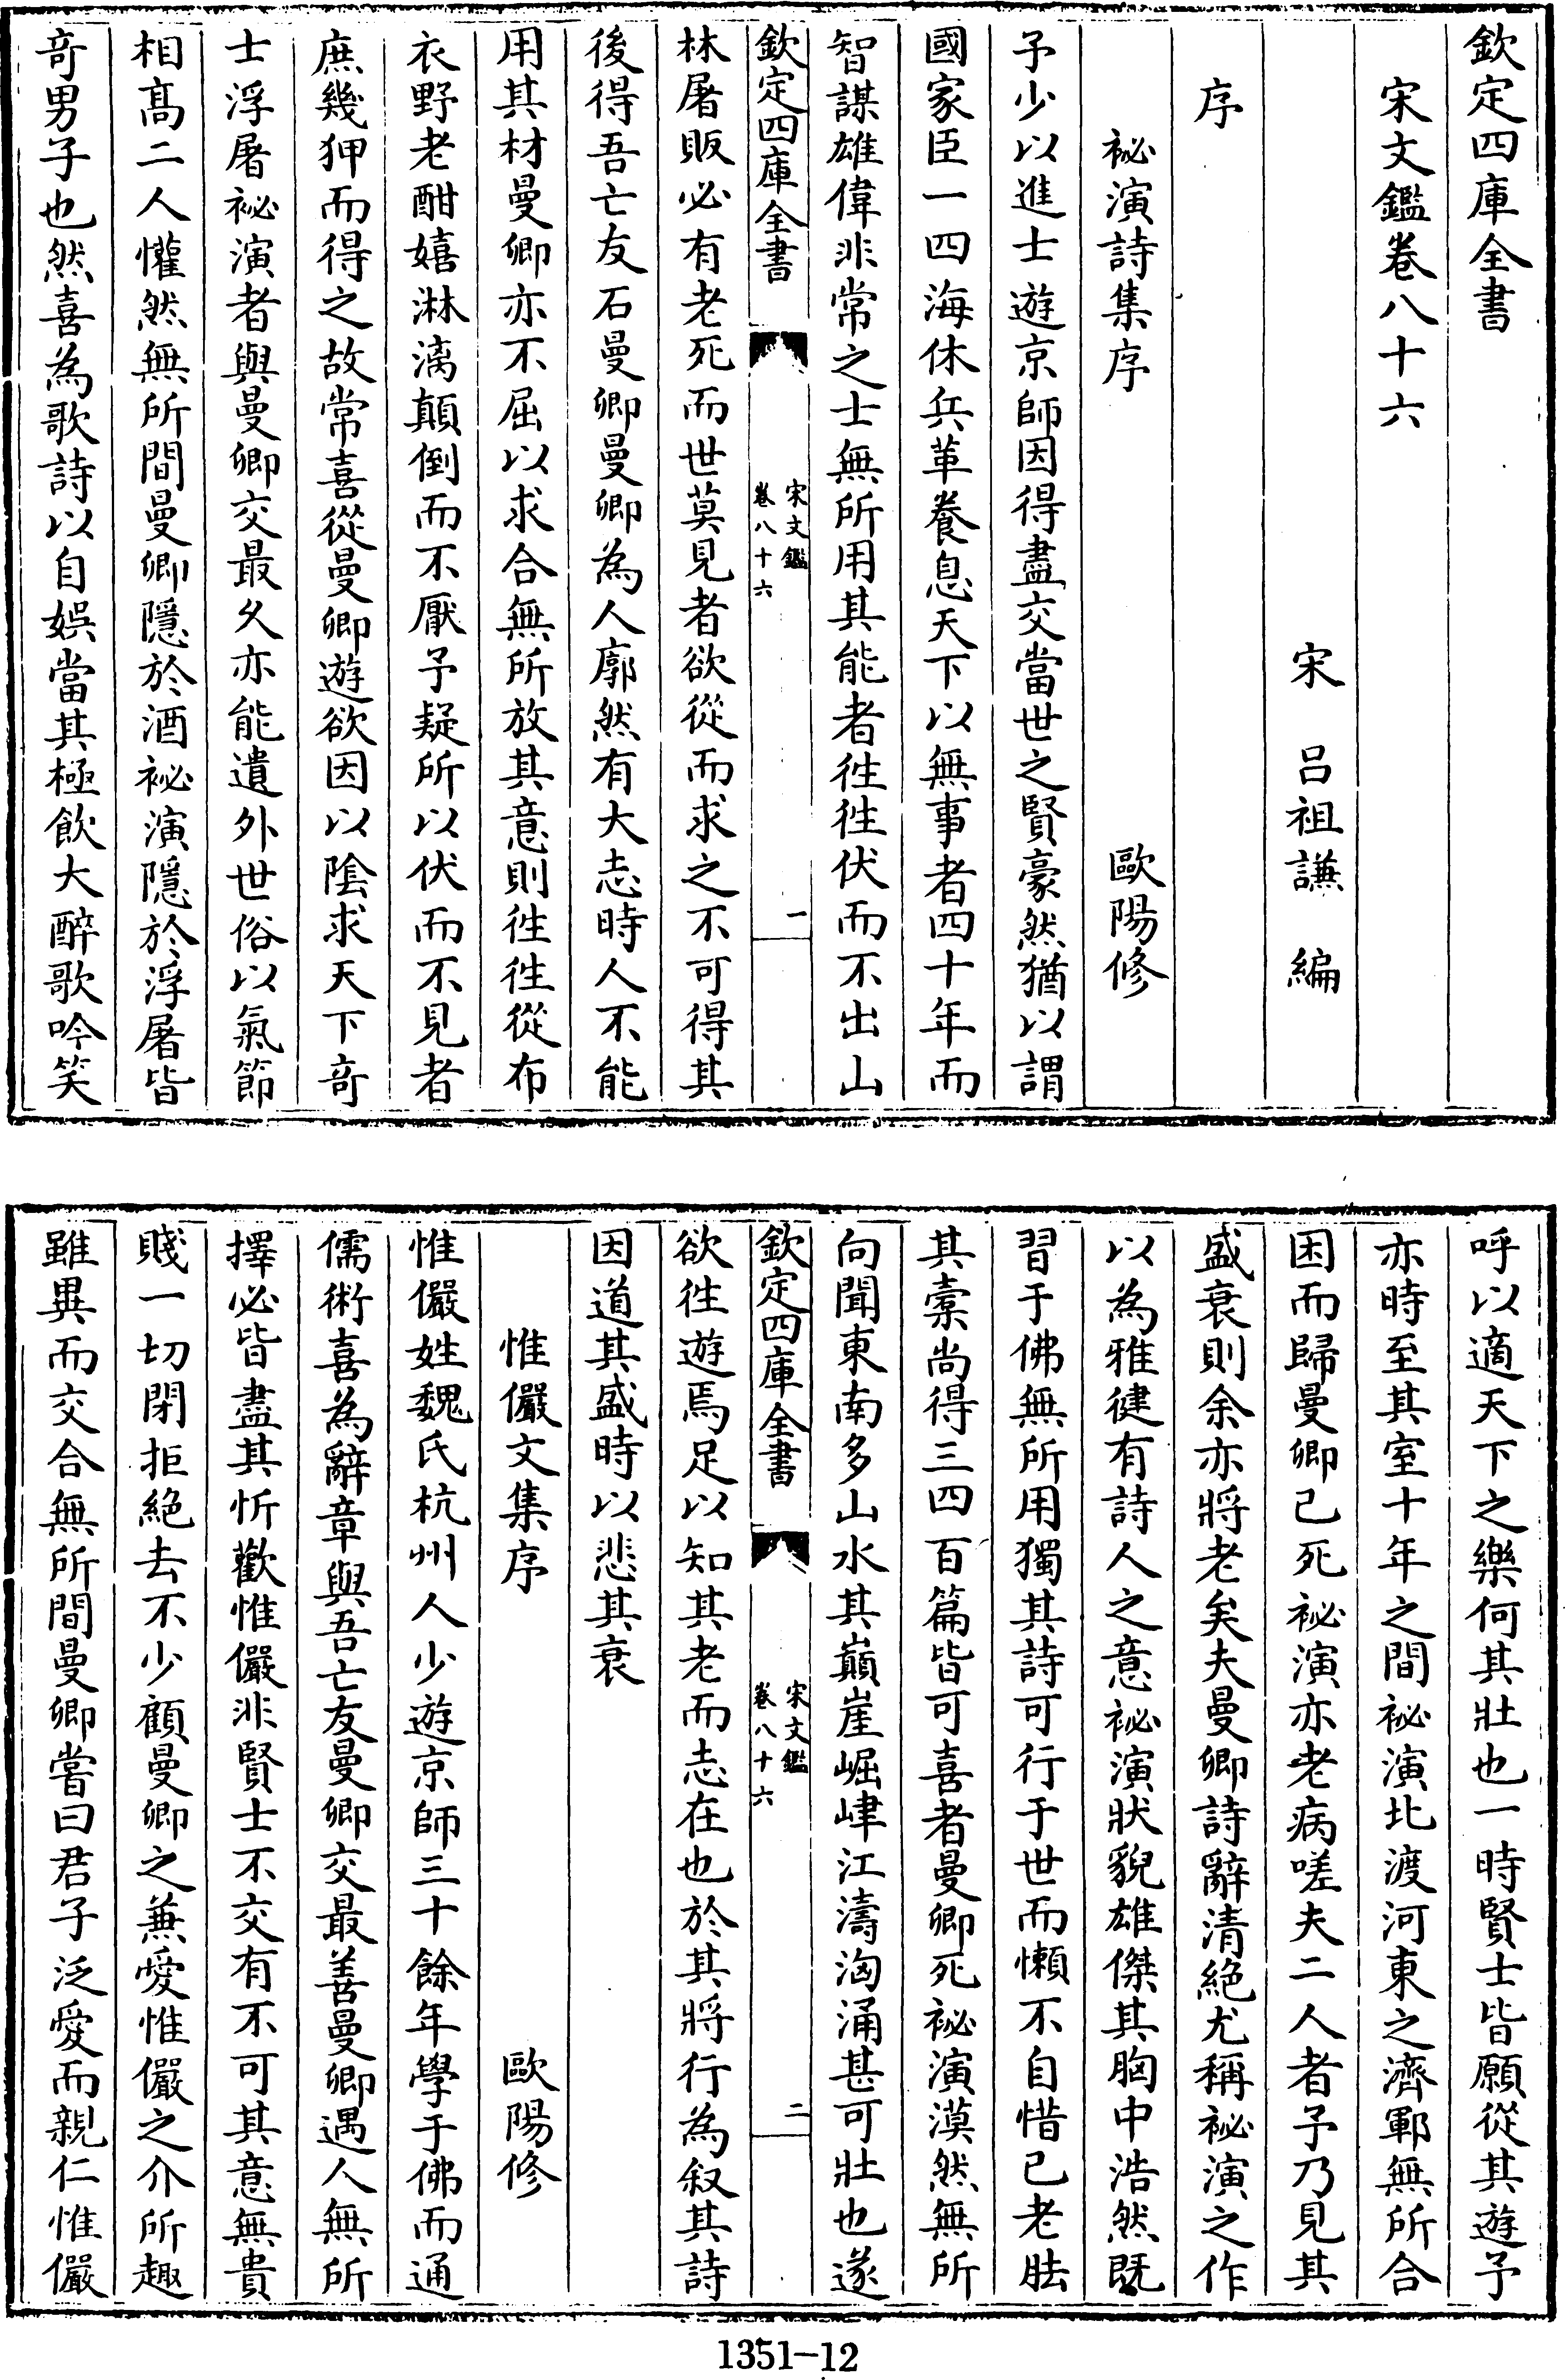 欽定四庫全書
宋文鑑卷八十六
宋 呂祖謙 編
序
祕演詩集序 歐陽修
予少以進士遊京師因得盡交當世之賢豪然猶以謂
國家臣一四海休兵革養息天下以無事者四十年而
智謀雄偉非常之士無所用其能者徃徃伏而不出山
欽定四庫全書 宋文鑑 卷八十六 一
林屠販必有老死而世莫見者欲從而求之不可得其
後得吾亡友石曼卿曼卿為人廓然有大志時人不能
用其材曼卿亦不屈以求合無所放其意則徃徃從布
衣野老酣嬉淋漓顛倒而不厭予疑所以伏而不見者
庶幾狎而得之故常喜從曼卿遊欲因以陰求天下奇
士浮屠祕演者與曼卿交最久亦能遺外世俗以氣節
相髙二人懽然無所間曼卿隱於酒祕演隱於浮屠皆
奇男子也然喜為歌詩以自娯當其極飲大醉歌吟笑
呼以適天下之樂何其壯也一時賢士皆願從其遊予
亦時至其室十年之間祕演北渡河東之濟鄆無所合
困而歸曼卿已死祕演亦老病嗟夫二人者予乃見其
盛衰則余亦將老矣夫曼卿詩辭清絶尤稱祕演之作
以為雅健有詩人之意祕演狀貎雄傑其胸中浩然既
習于佛無所用獨其詩可行于世而懶不自惜已老胠
其橐尚得三四百篇皆可喜者曼卿死祕演漠然無所
向聞東南多山水其巔崖崛峍江濤洶涌甚可壯也遂
欽定四庫全書 宋文鑑 卷八十六 二
欲徃遊焉足以知其老而志在也於其將行為叙其詩
因道其盛時以悲其衰
惟儼文集序 歐陽修
惟儼姓魏氏杭州人少遊京師三十餘年學于佛而通
儒術喜為辭章與吾亡友曼卿交最善曼卿遇人無所
擇必皆盡其忻歡惟儼非賢士不交有不可其意無貴
賤一切閉拒絶去不少顧曼卿之兼愛惟儼之介所趣
雖異而交合無所間曼卿嘗曰君子泛愛而親仁惟儼
1351-12